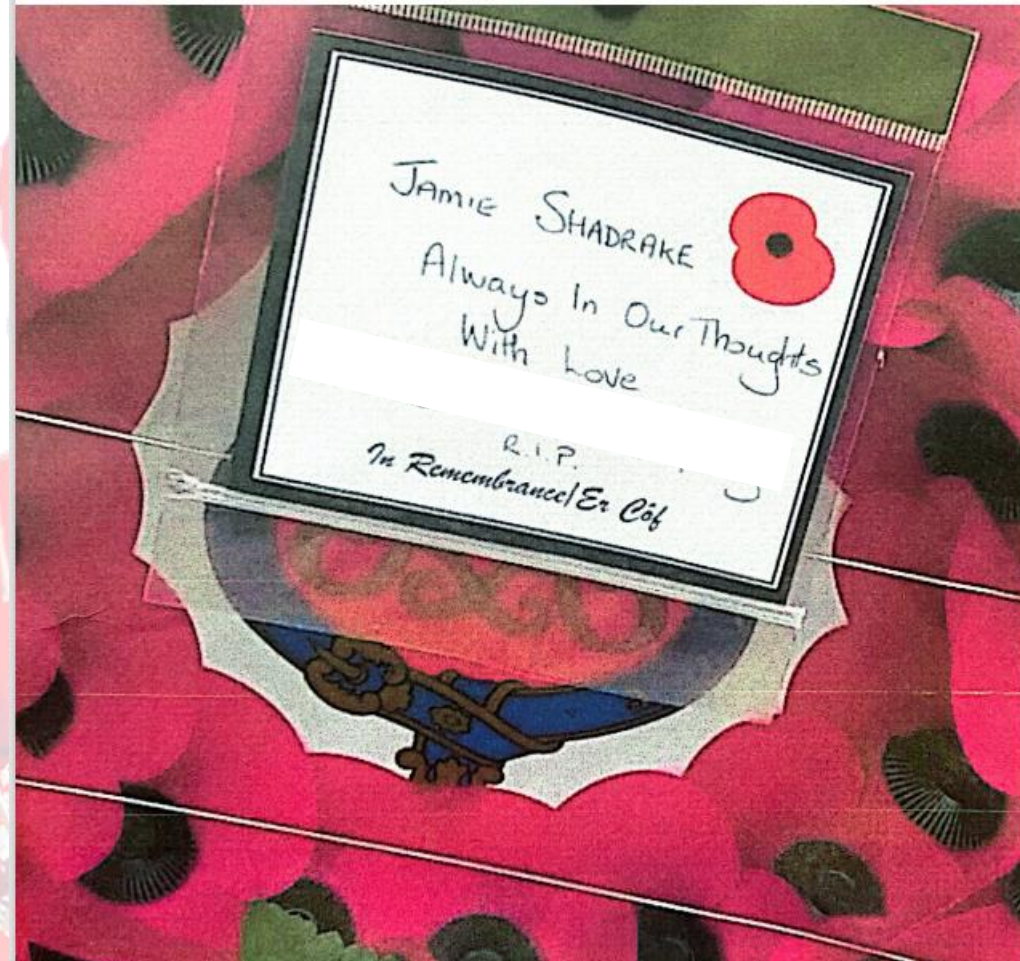 JAMIE SHADRAKE
Always In Our Thoughts
With Love
R.I.P.
In Remembrance/Er Côf